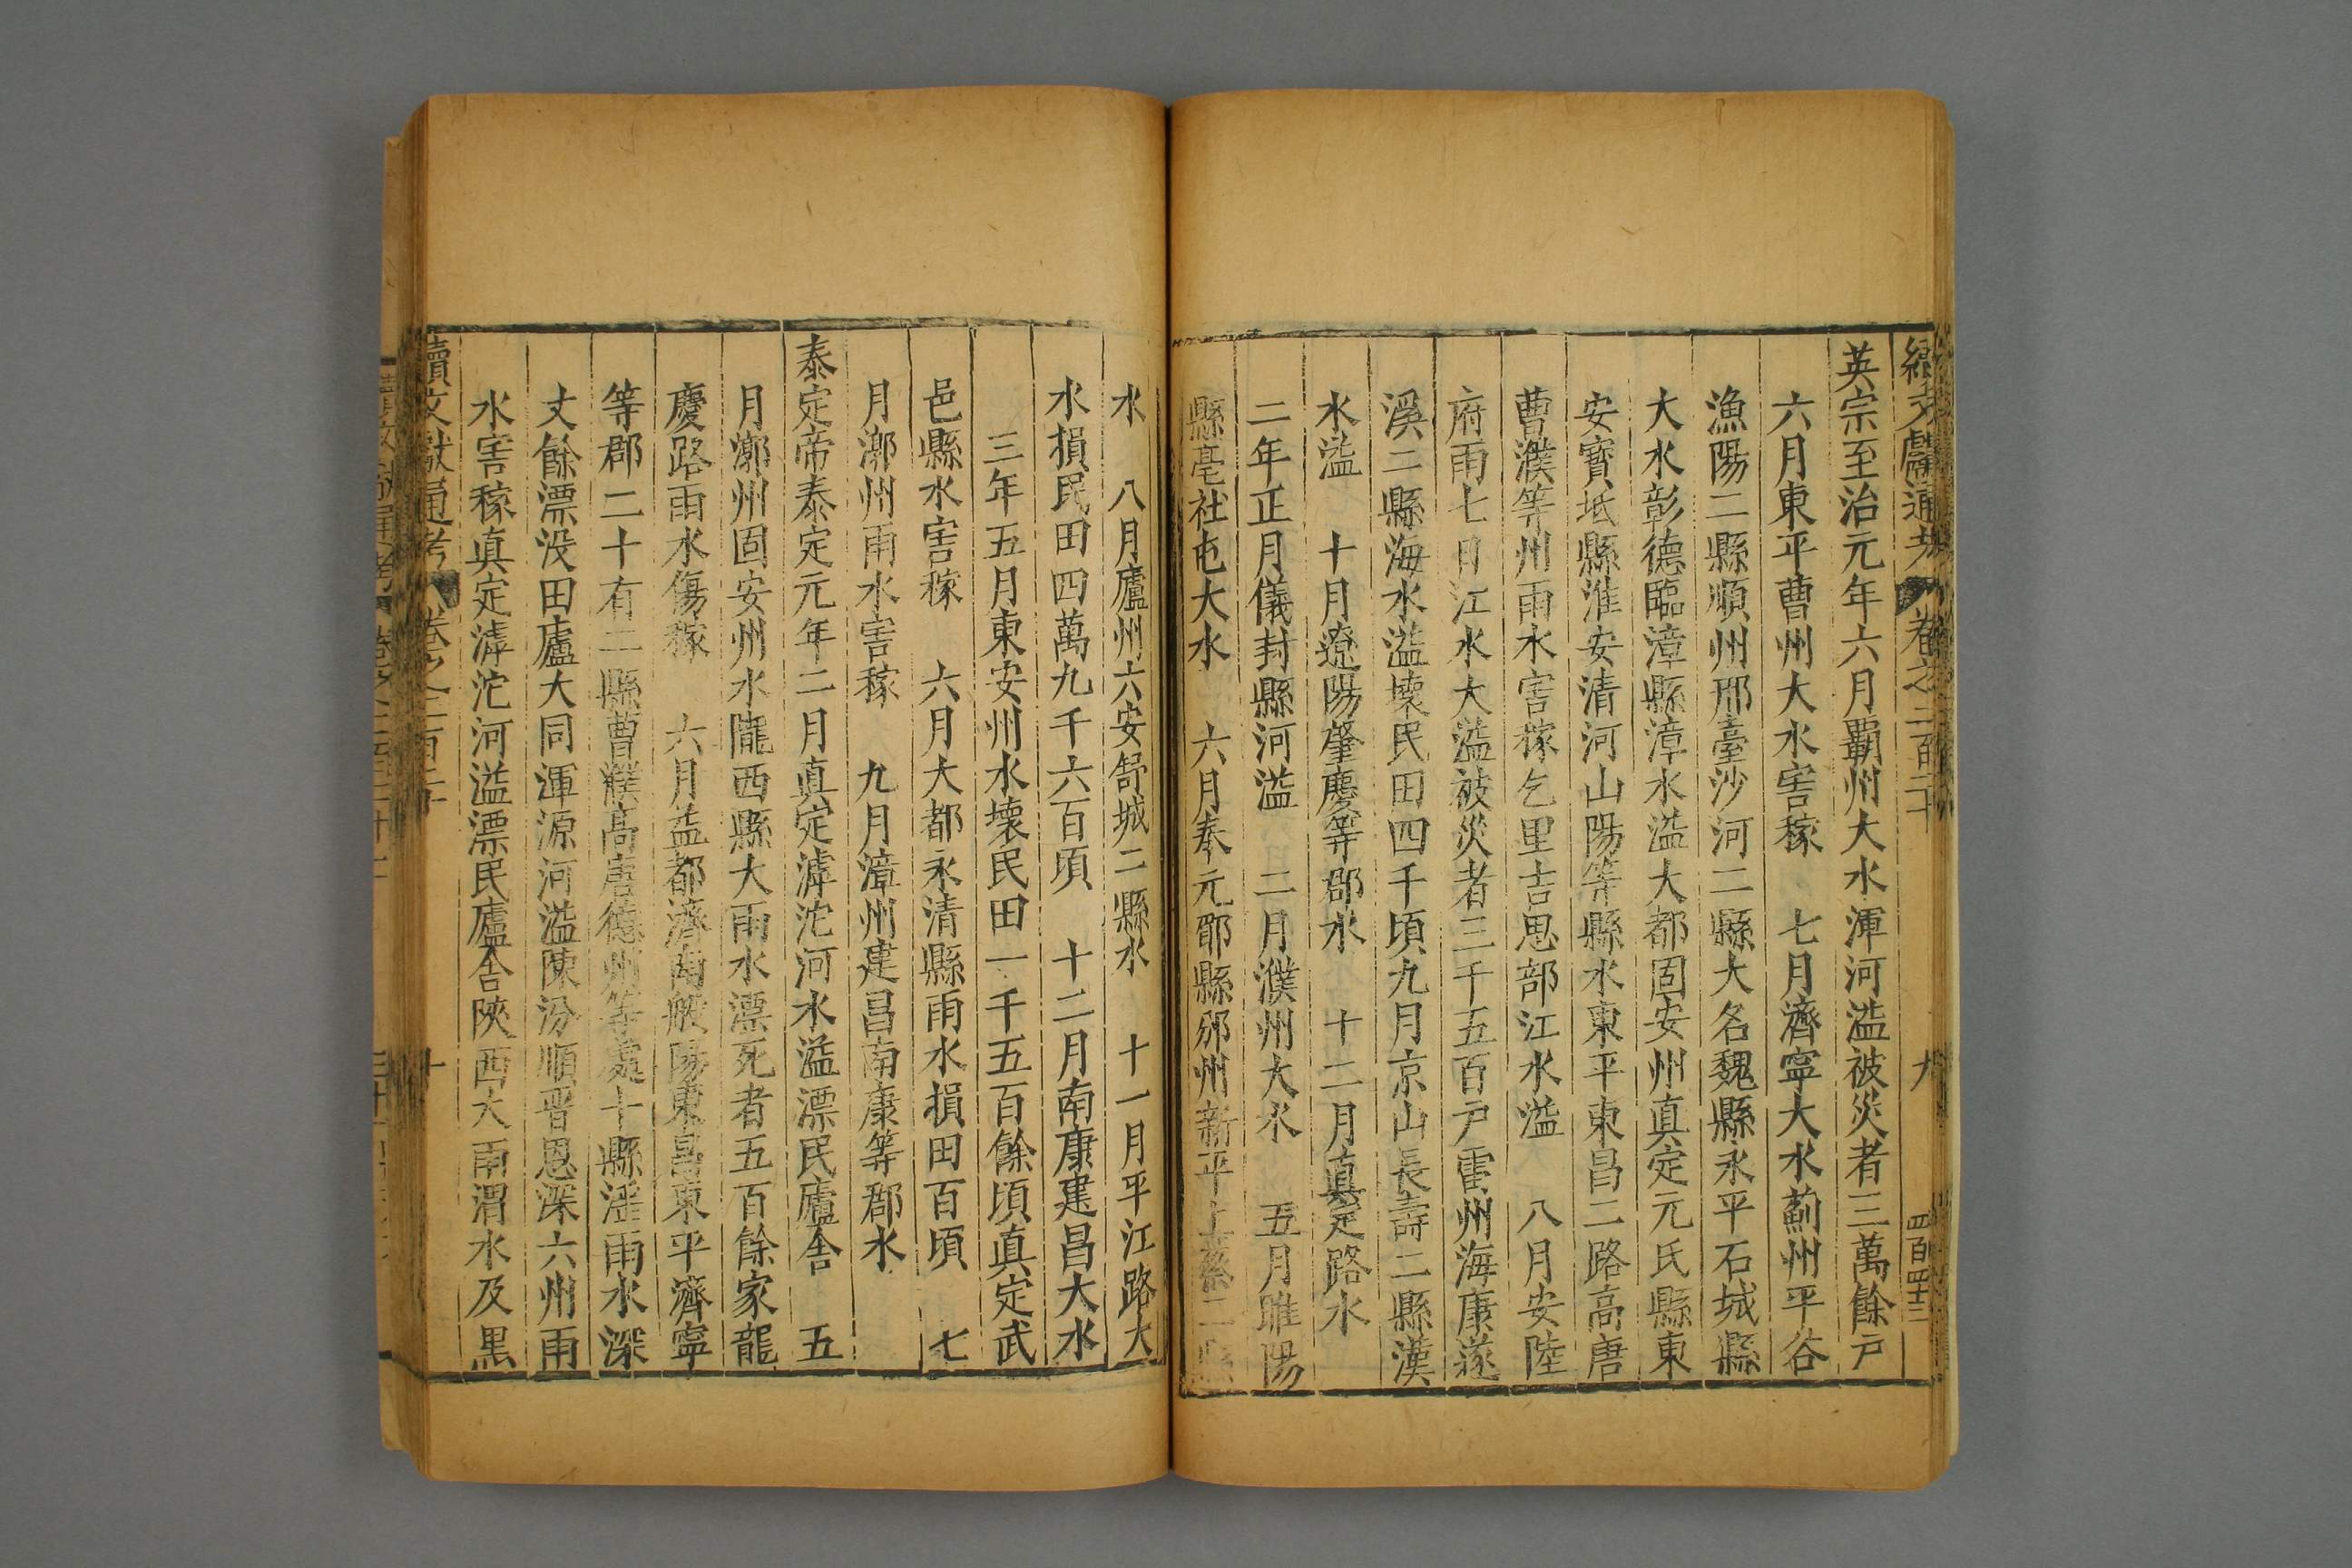 續文獻通考 卷之二百二十 九 四百四十三
英宗至治元年六月霸州大水渾河溢被災者三萬餘戸
六月東平曹州大水害稼 七月濟寧大水薊州平谷
漁陽二縣順州邢臺沙河二縣大名魏縣永平石城縣
大水彰德臨漳縣漳水溢大都固安州真定元氏縣東
安寶坻縣淮安清河山陽等縣水東平東昌二路高唐
曹濮等州雨水害稼乞里吉思部江水溢 八月安陸
府雨七日江水大溢被災者三千五百戸雷州海康遂
溪二縣海水溢壞民田四千頃九月京山長壽二縣漢
水溢 十月遼陽肇慶等郡水 十二月真定路水
二年正月儀封縣河溢 二月濮州大水 五月睢陽
縣亳社屯大水 六月奉元郿縣邠州新平上蔡二縣
水 八月廬州六安舒城二縣水 十一月平江路大
水損民田四萬九千六百頃 十二月南康建昌大水
三年五月東安州水壞民田一千五百餘頃真定武
邑縣水害稼 六月大都永清縣雨水損田百頃 七
月漷州雨水害稼 九月漳州建昌南康等郡水
泰定帝泰定元年二月真定滹沱河水溢漂民廬舍 五
月漷州固安州水隴西縣大雨水漂死者五百餘家龍
慶路雨水傷稼 六月益都濟南般陽東昌東平濟寧
等郡二十有二縣曹濮高唐德州等處十縣淫雨水深
丈餘漂没田廬大同渾源河溢陳汾順晋恩深六州雨
水害稼真定滹沱河溢漂民廬舍陝西大雨渭水及黑
續文獻通考 卷之二百二十 十